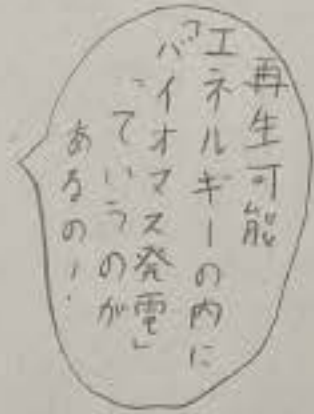 再生可能
エネルギーの内に
「バイオマス発電」
っていうのが
あるの！